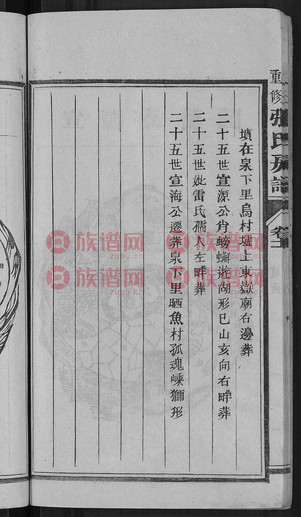 重修張氏房譜 卷二
墳在泉下里烏村墟上東嶽廟右邊葬
二十五世宣源公肖螃蠏游湖形巳山亥向右畔葬
二十五世妣雷氏孺人左畔葬
二十五世宣海公遷葬泉下里晒魚村孤魂嵊獅形
族谱网
族谱网
族谱网
族谱网